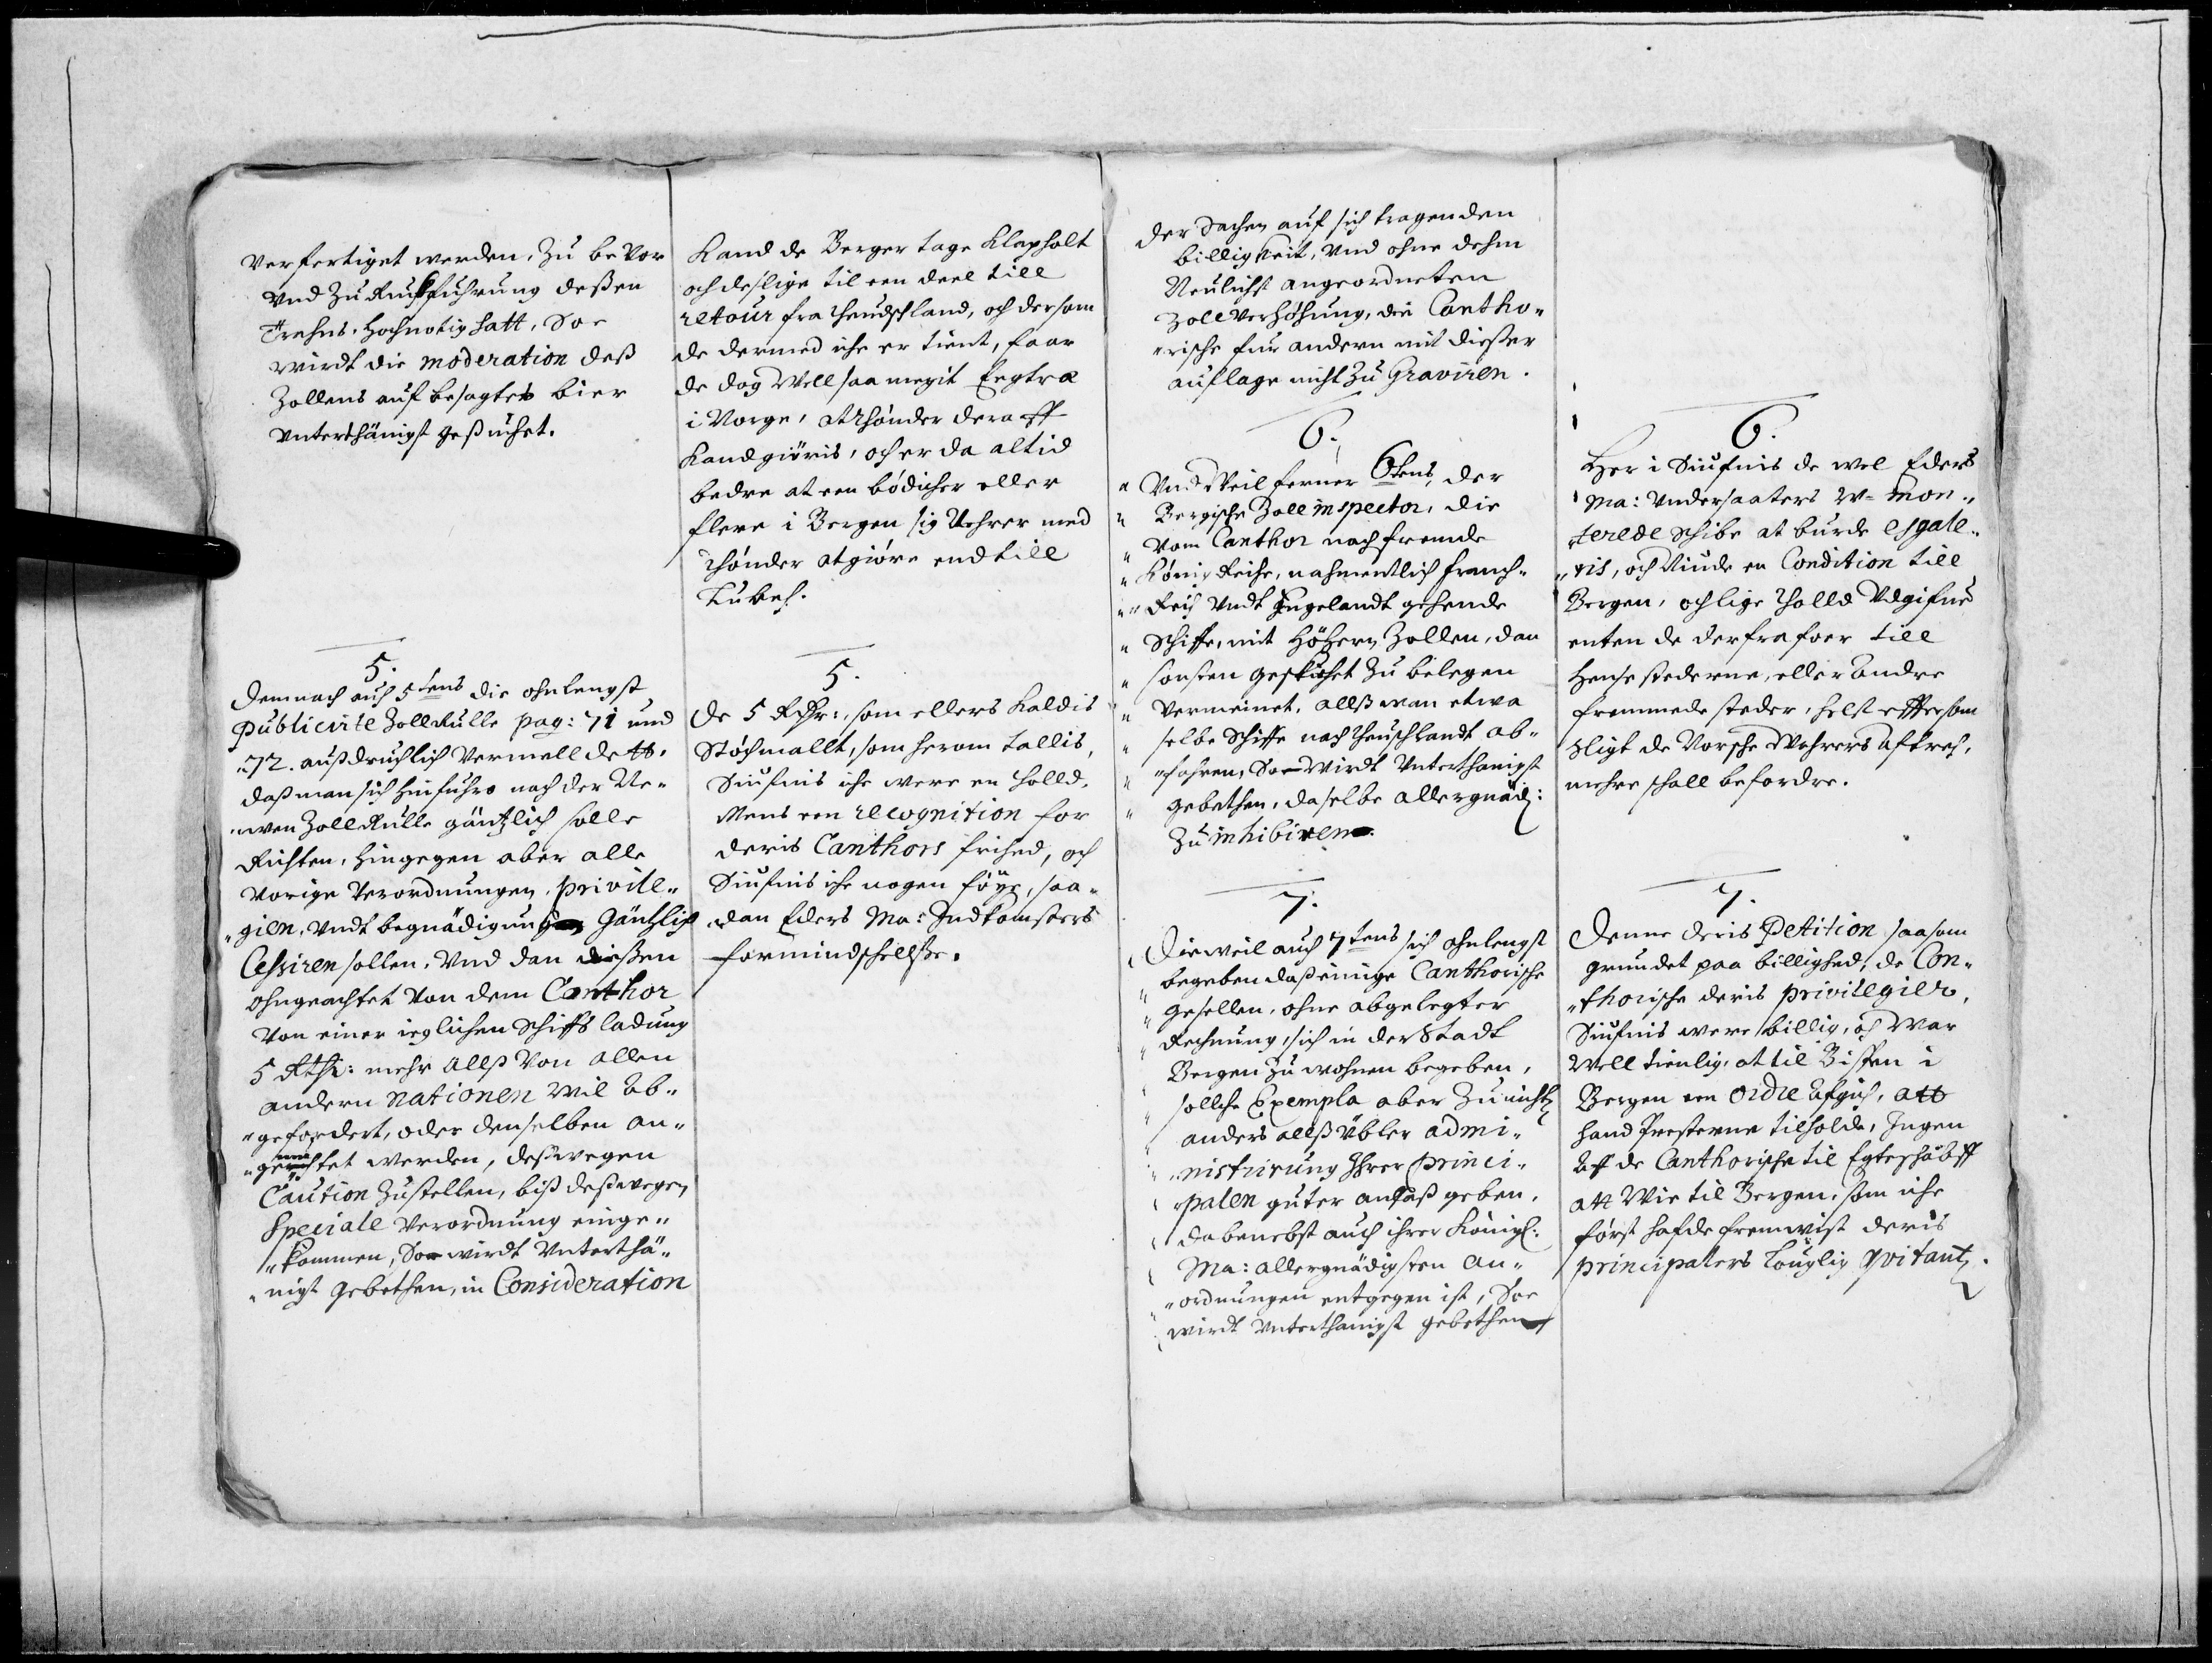 Verfertiget werden, Zu bevor
Vnd Zu Rückführung deßen
Trahns, Hochnotig hatt, Soe
wirdt die moderation deß
Zollens auf besagtes bier
Vnterthänigst gesuchet.
5.
Demnach auch 5tens die ohnlengst
Publicirte Zollrulle pag: 71 und
72. außdrucklich Vermelldett,
daß man sich hinfuhro nach der Ne„
„wen Zollrulle gäntzlich solle
Richten, Hingegen aber alle
Vorige Verordnungen, privile„
„gien, Vndt begnädigungen Gäntzlich
Cessiren sollen, Vnd dan dießen
ohngeachtet Von dem Canthor
Von einer ieglichen Schiffs ladung
5 Rthr: mehr alß Von allen
andern Nationen Wil ab„
„gefordert, oder denselben an„
werden, deßwegen
Caution Zustellen, biß deßwegen
Speciale Verordnung einge„
„kommen, Soe wirdt Vnterthä„
„nigst gebethen, in Consideration
Kand de Berger tage Klapholt
och deslige til een deel till
retour fra Theudschland, och dersom
de dermed iche er tient, faar
de dog Well saa megit Eegtræ
i Norge, at Thønder deraff
Kand giøris, och er da altid
bedre at een bødicher eller
flere i Bergen sig Nehrer med
Thønder at giøre end till
Lubech.
5.
De 5 Rdhr:, som ellers Kaldis
Støchmallt, som herom tallis,
Siufnis iche were en Holld,
Mens een recognition for
deris Canthors frihed, och
Siufnis iche nogen føye, saa„
„dan Eders Ma: Indkomsters
formindschellße.
der Sachen auf sich tragenden
billigkeit, Vnd ohne dehm
Neulichst angeordneten
Zoll Verhöhung, die Cantho„
„rische fur andern mit dießer
auflage nicht Zu Graviren.
6.
Vnd Weil ferner 6tens, der
Bergische Zoll inspector, die
Vom Canthor nach fremde
König Reiche, nahmentlich Franch„
„Reich Vndt Engelandt gehende
Schiffe, mit Höhern Zollen, dan
sonsten Zu belegen
Vermeinet, allß wan etwa
selbe Schiffe nach Theuschlandt ab„
„fahren, Soe Wirdt Vnterthanigst
gebethen, daselbe allergnäd:
Zu inhibiren.
7.
Dieweil auch 7tens sich ohnlengst
begeben daß einige Canthorische
Gesellen, ohne abgelegter
Rechnung, sich in der Stadt
Bergen Zu wohnen begeben,
sollche Exempla aber Zu nichtz
anders allß übler admi„
„nistrirung Ihrer princi„
„palen guter anlaß geben,
dabenebst auch ihrer Königl:
Ma: allergnädigsten An„
„ordnungen entgegen ist, Soe
wirdt Vnterthanigst gebethen
6.
Her i Siufnis de wel Eders
Ma: Vndersaaters W= mon„
„terede Schibe at burde
„ris, och Niude en Condition till
Bergen, och lige Tholld Vdgifne
enten de derfra foer till
Hense stederne, eller andre
fremmede steder, helst effter som
sligt de Norsche Wahrers aftrech,
mehre schall befordre.
7.
Denne deris Petition saasom
grundet paa billighed, de Con„
„thorische deris privilegier,
Siufnis were billig, och War
Well tienlig, at til Bispen i
Bergen een Ordre afgich, att
hand Presterne tilholde, Ingen
Aff de Canthorische til Egteschabff
att Wie til Bergen, som iche
først hafde fremwist deris
principalers louglig qvitantz.